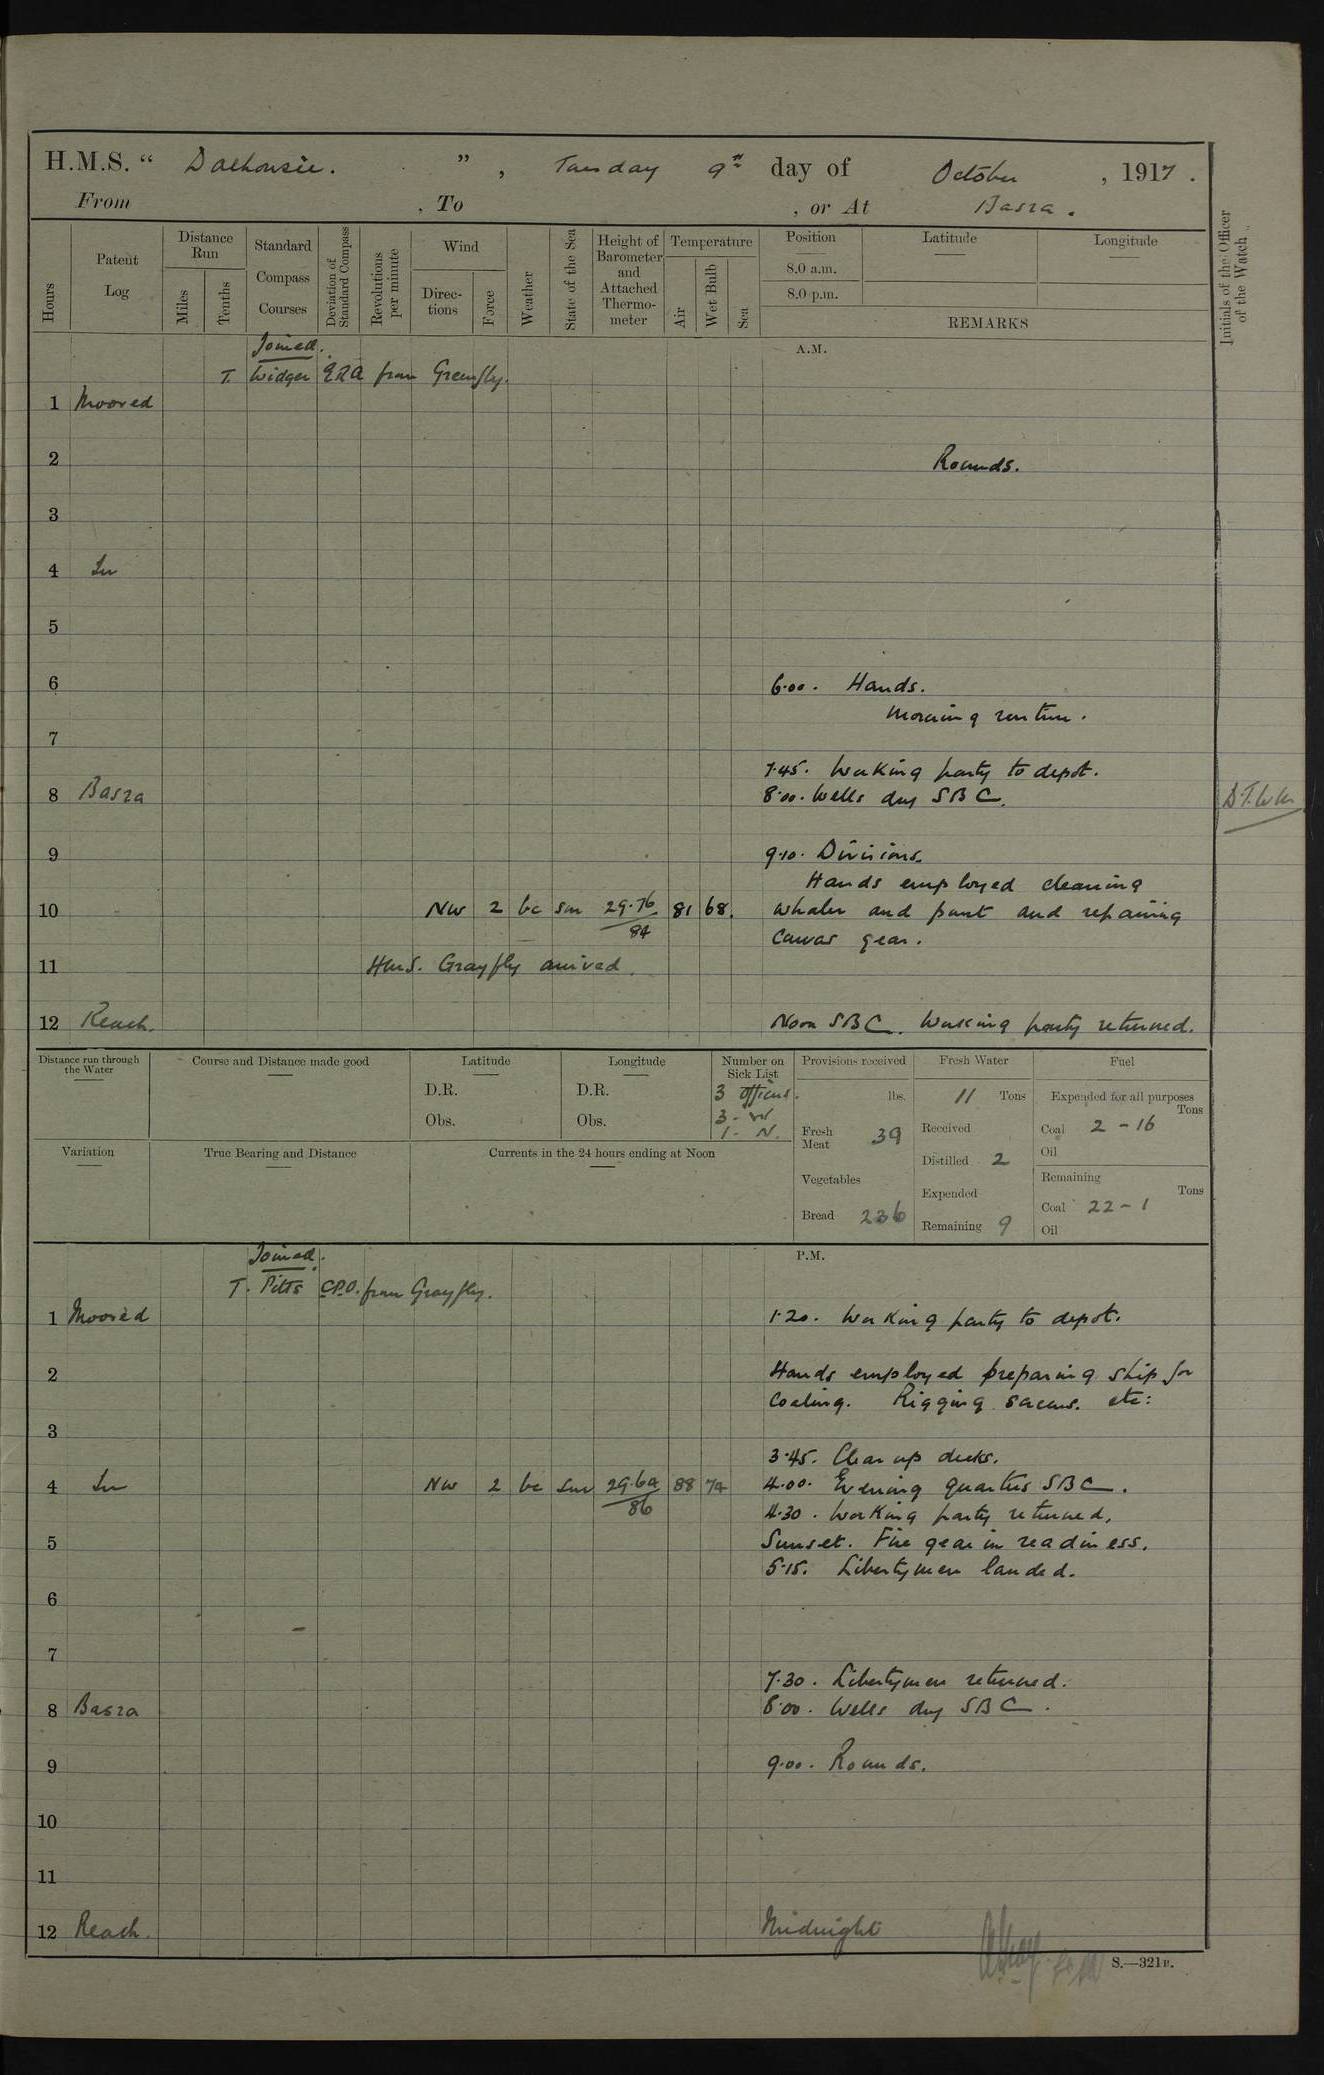 H.M.S. " Dalhousie. ", Tuesday 9th day of October, 1917.
From , To , or At Basra.
Hours
Patent Log
Distance Run
Miles
Tenths
Standard Compass Courses
Deviation of Standard Compass
Revolutions per minute
Wind
Directions
Force
Weather
State of the Sea
Height of Barometer and Attached Thermometer
Temperature
Air
Wet Bulb
Sea
Position
8.0 a.m.
8.0 p.m.
Latitude
Longitude
REMARKS
Initials of the Officer of the Watch
Joined.
A.M.
T. Widger ERA from Greenfly.
1 Moored
2 Rounds.
3
4 In
5
6 6.00. Hands.
Morning routine.
7
7.45. Working party to depot.
8 Basra 8.00. Wells dry SBC.
9 9.10. Divisions.
Hands employed cleaning
10 NW 2 bc sm 29.76 81 68. whaler and punt and repairing
84 canvas gear.
11 HMS. Grayfly arrived.
12 Reach. Noon SBC. Working party returned.
Distance run through the Water
Course and Distance made good
Latitude
D.R.
Obs.
Longitude
D.R.
Obs.
Number on Sick List
3 officers.
3 - W
1 - N.
Provisions received
lbs.
Fresh Meat 39
Vegetables
Bread 236
Fresh Water
11 Tons
Received
Distilled 2
Expended
Remaining 9
Fuel
Expended for all purposes
Tons
Coal 2 - 16
Oil
Remaining
Tons
Coal 22 - 1
Oil
Variation
True Bearing and Distance
Currents in the 24 hours ending at Noon
Joined.
P.M.
T. Pitts CPO. from Grayfly.
1 Moored 1.20. Working party to depot.
2 Hands employed preparing ship for
coaling. Rigging screens. etc:
3
3.45. Clear up decks.
4 In NW 2 bc sm 29.64 88 74 4.00. Evening quarters SBC.
86 4.30. Working party returned.
5 Sunset. Fire gear in readiness.
5.15. Libertymen landed.
6
7
7.30. Libertymen returned.
8 Basra 8.00. Wells dry SBC.
9 9.00. Rounds.
10
11
12 Reach. Midnight
S.—321B.